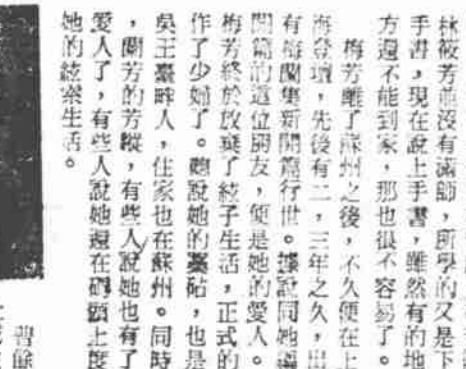 林筱芳並沒有滿師，所學的又是下
手書，現在說上手書，雖然有的地
方還不能到家，那也很不容易了。
梅芳離了蘇州之後，不久便在上
海登壇，先後有二，三年之久，出
有梅蘭集新開篇行世。據說同她編
開篇的這位開友，便是她的愛人。
梅芳終於放棄了絃子生活，正式的
作了少婦了。聽說她的藁砧，也是
吳王臺畔人，住家也在蘇州。同時
，蘭芳的芳蹤，有些人說她也有了
愛人了，有些人說她還在碼頭上度
她的絃索生活。
曾餘